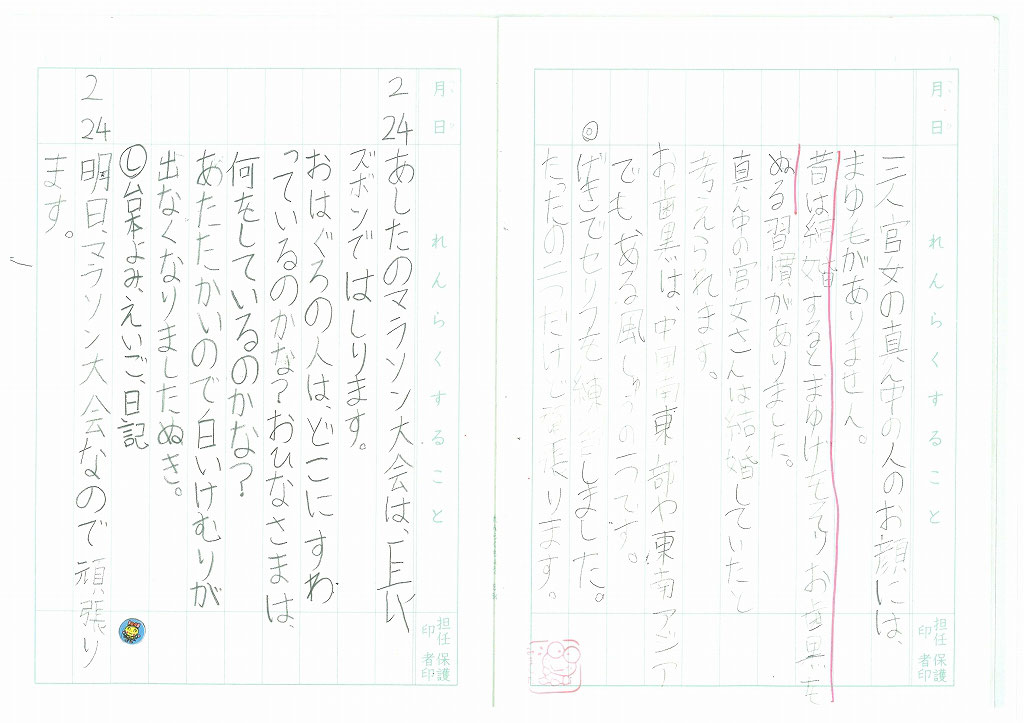 月日 れんらくすること 担任印 保護者印
三人官女の真ん中の人のお顔には、
まゆ毛がありません。
昔は結婚するとまゆげもそりお歯黒も
ぬる習慣がありました。
真ん中の官女さんは結婚していたと
考えられます。
お歯黒は、中国南東部や東南アジア
でもある風しゅうの一つです。
◎げきでセリフを練習しました。
たったの二つだけど頑張ります。
月日 れんらくすること 担任印 保護者印
2 24 あしたのマラソン大会は、長い
ズボンではしります。
おはぐろの人は、どこにすわ
っているのかな?おひなさまは、
何をしているのかな?
あたたかいので白いけむりが
出なくなりましたぬき。
Ⓛ台本よみ、えいご、日記
2 24 明日、マラソン大会なので頑張り
ます。